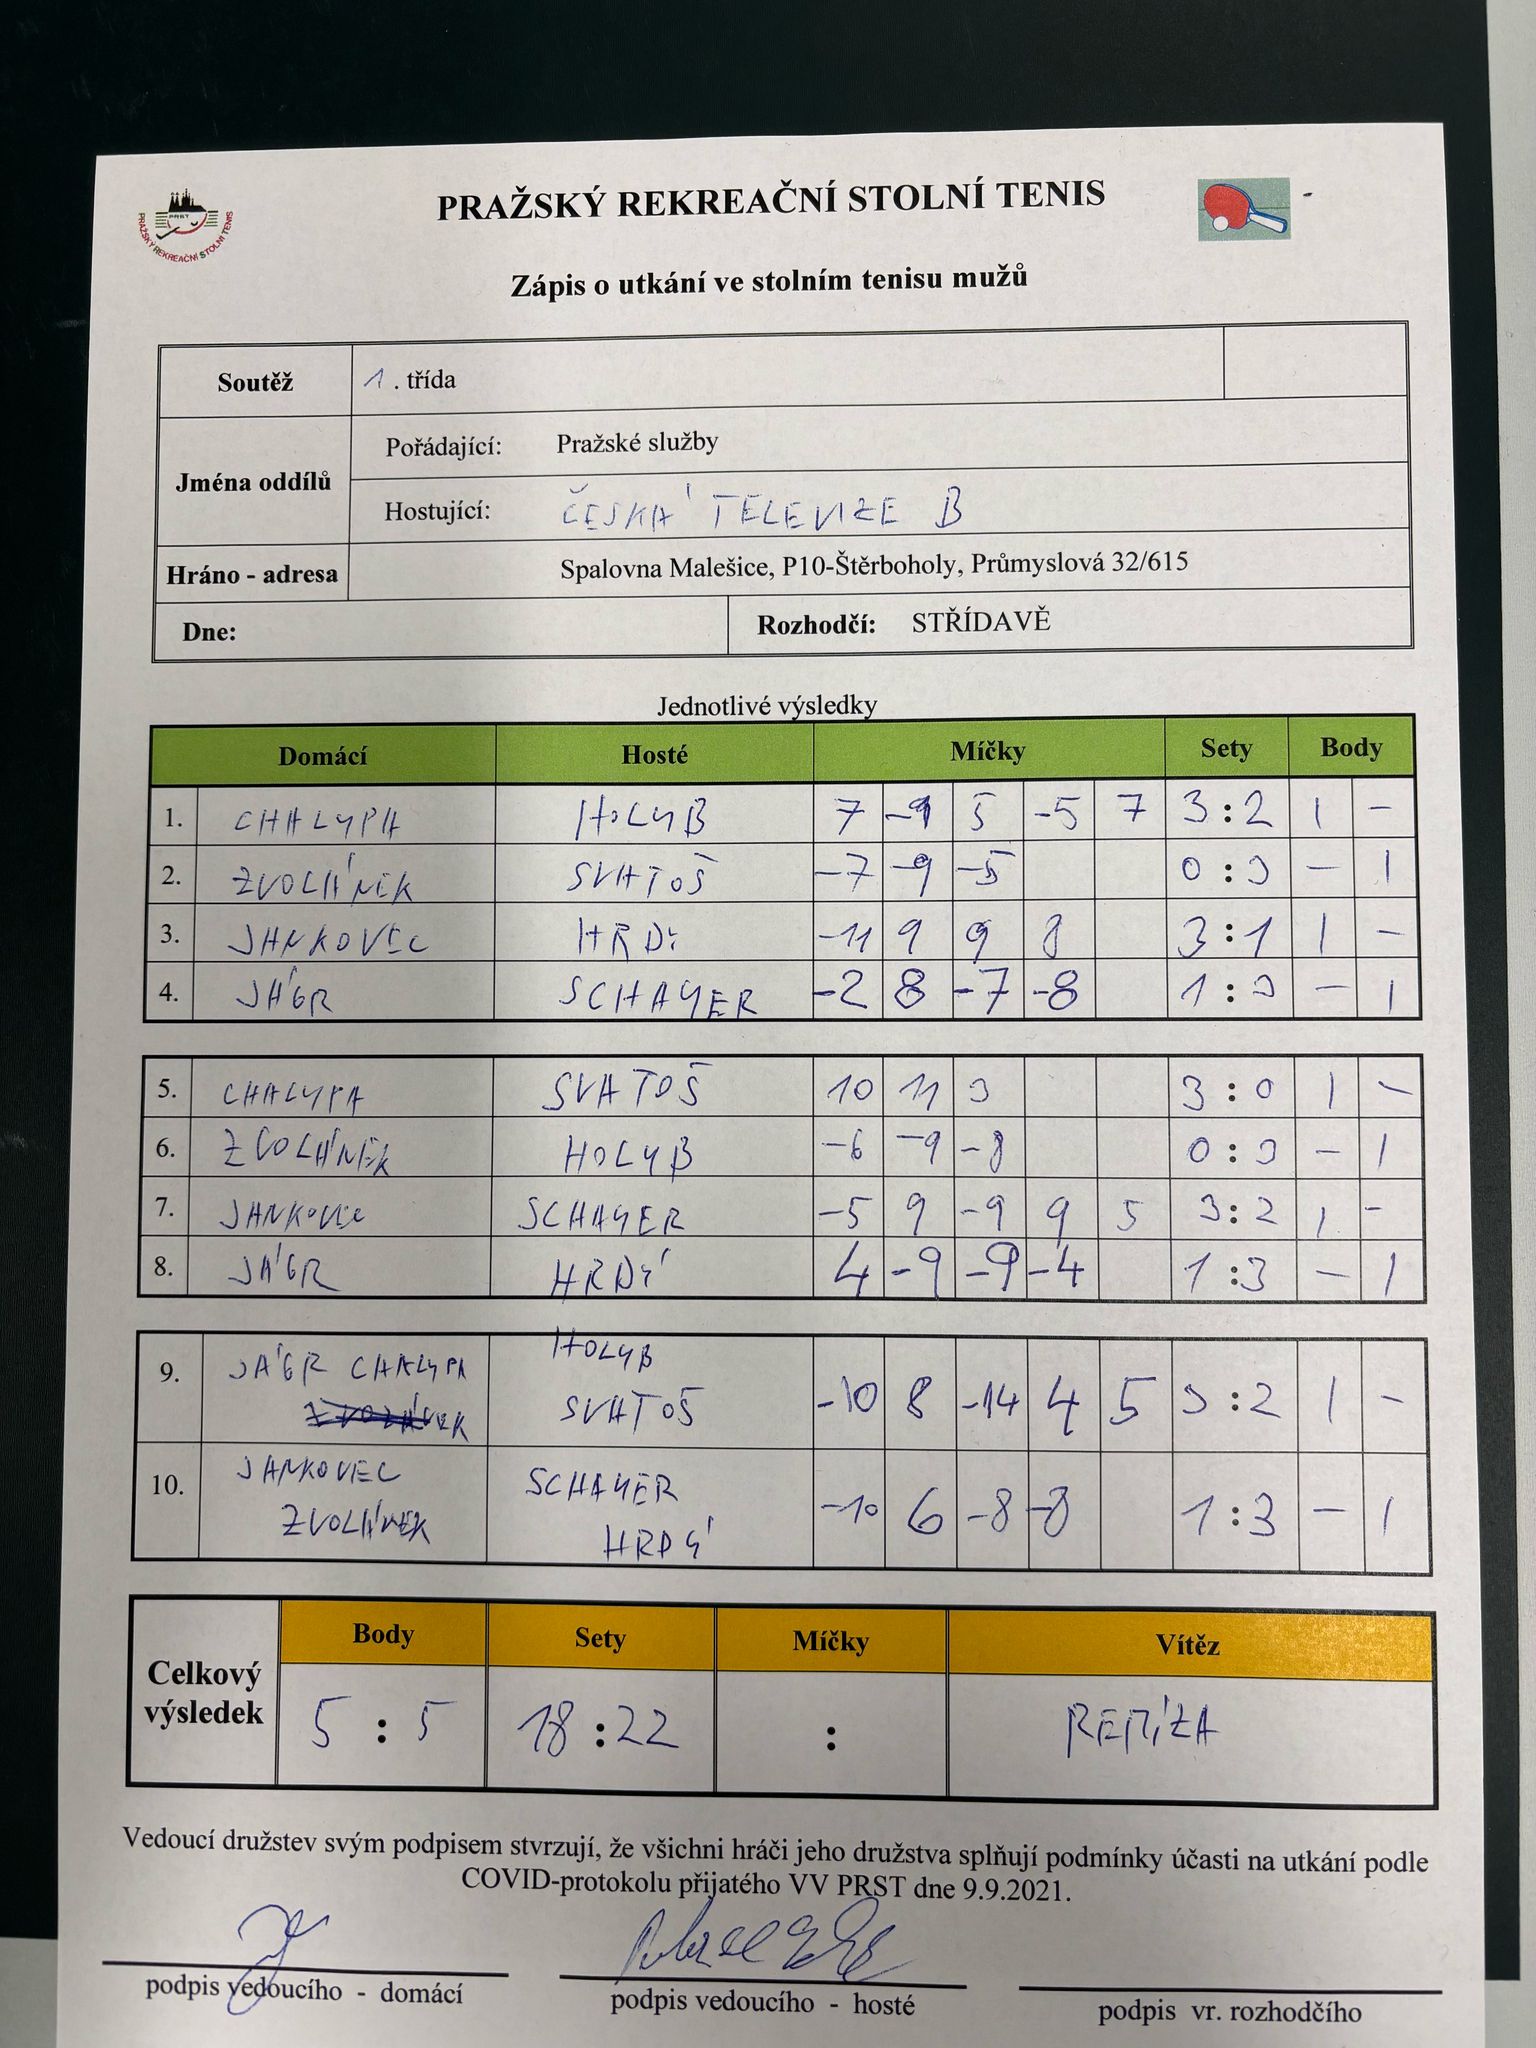 PRAŽSKÝ REKREAČNÍ STOLNÍ TENIS
PRST
PRAŽSKÝ REKREAČNÍ STOLNÍ TENIS
Zápis o utkání ve stolním tenisu mužů
Soutěž 1. třída
Jména oddílů
Pořádající: Pražské služby
Hostující: ČESKÁ TELEVIZE B
Hráno - adresa Spalovna Malešice, P10-Štěrboholy, Průmyslová 32/615
Dne: Rozhodčí: STŘÍDAVĚ
Jednotlivé výsledky
Domácí Hosté Míčky Sety Body
1. CHALYPA HOLUB 7 -9 5 -5 7 3:2 1 -
2. ZVOLÁNEK SVATOŠ -7 -9 -5 0:3 - 1
3. JANKOVEC HRDÝ -11 9 9 8 3:1 1 -
4. JÁGR SCHAYER -2 8 -7 -8 1:3 - 1
5. CHALYPA SVATOŠ 10 11 3 3:0 1 -
6. ZVOLÁNEK HOLUB -6 -9 -8 0:3 - 1
7. JANKOVEC SCHAYER -5 9 -9 9 5 3:2 1 -
8. JÁGR HRDÝ 4 -9 -9 -4 1:3 - 1
9. JÁGR CHALYPA HOLUB
SVATOŠ -10 8 -14 4 5 3:2 1 -
10. JANKOVEC SCHAYER
ZVOLÁNEK HRDÝ -10 6 -8 -8 1:3 - 1
Celkový výsledek
Body Sety Míčky Vítěz
5 : 5 18 : 22 : REMÍZA
Vedoucí družstev svým podpisem stvrzují, že všichni hráči jeho družstva splňují podmínky účasti na utkání podle
COVID-protokolu přijatého VV PRST dne 9.9.2021.
podpis vedoucího - domácí podpis vedoucího - hosté podpis vr. rozhodčího